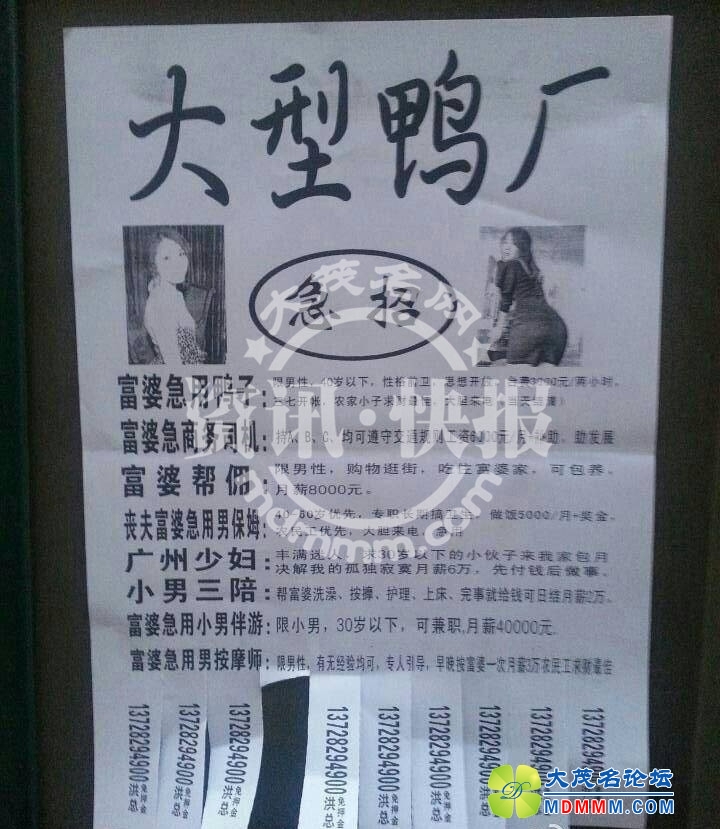 大型鸭厂
急招
大茂名网
资讯·快报
富婆急用鸭子:限男性,40岁以下,性格前卫,思想开放,台费3000元/两小时。
三七开帐,农家小子求财最佳,大胆来电(当天
富婆急商务司机:持A、B、C、均可遵守交通规则工资6000元/月+补助、助发展
富婆帮佣:限男性,购物逛街,吃住富婆家,可包养。
月薪8000元。
丧夫富婆急用男保姆:40-60岁优先,专职长期搞卫生,做饭5000/月+奖金。
农民工优先,大胆来电,急用
广州少妇:丰满迷人,求30岁以下的小伙子来我家包月
决解我的孤独寂寞月薪6万,先付钱后做事。
小男三陪:帮富婆洗澡、按摩、护理、上床、完事就给钱可日结月薪2万。
富婆急用小男伴游:限小男,30岁以下,可兼职,月薪40000元.
富婆急用男按摩师:限男性,有无经验均可,专人引导,早晚按富婆一次月薪3万农民工求财最佳
13728294900 洪总
13728294900 洪总
13728294900 洪总
13728294900 洪总
13728294900 洪总
13728294900 洪总
13728294900 洪总
13728294900 洪总
13728294900 洪总
大茂名论坛
MDMMM.COM